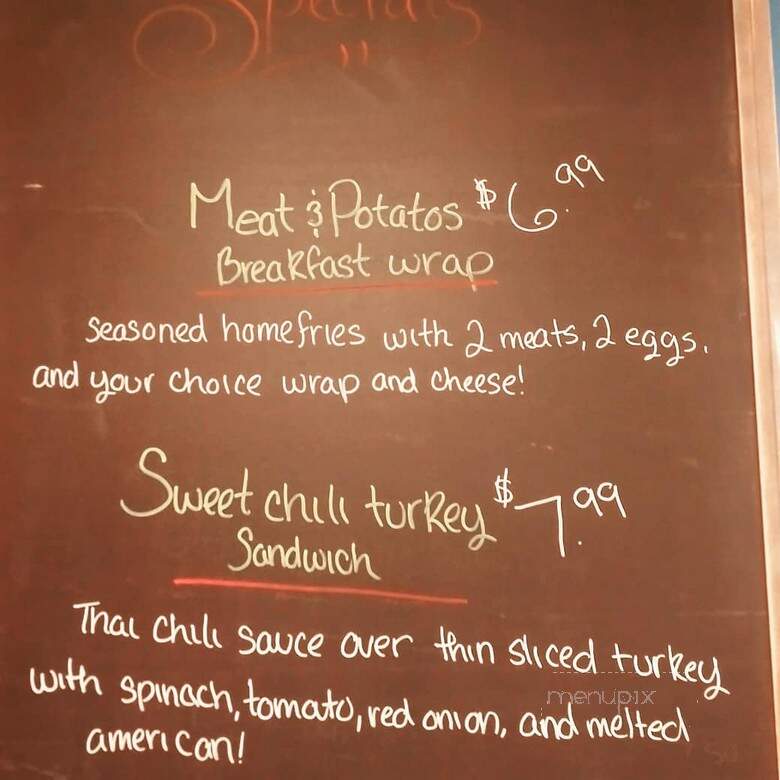 Specials
Meat & Potatos $6.99
Breakfast wrap
seasoned homefries with 2 meats, 2 eggs,
and your choice wrap and cheese!
Sweet chili turkey $7.99
Sandwich
Thai chili sauce over thin sliced turkey
with spinach, tomato, red onion, and melted
american!
menupix